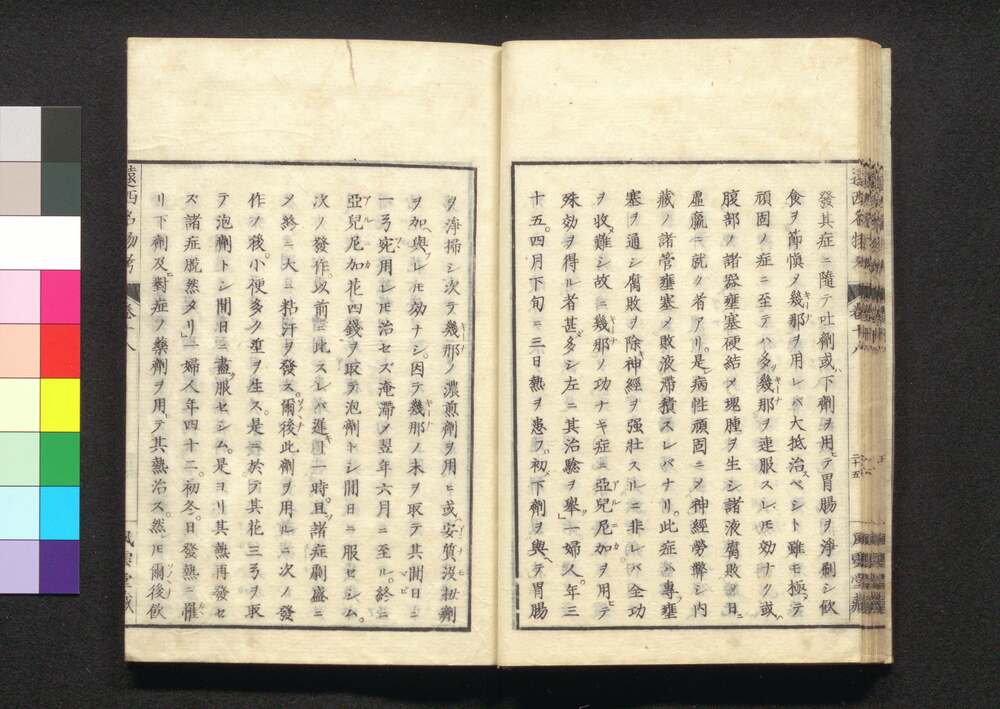 發其症ニ隨テ吐劑或ハ下劑ヲ用テ胃腸ヲ淨刷シ飲
食ヲ節愼メ幾那ヲ用レバ大抵治スベシト雖モ極テ
頑固ノ症ニ至テハ多ク幾那ヲ連服スレモ効ナク或ハ
腹部ノ諸器壅塞硬結メ塊腫ヲ生シ諸液腐敗メ日ニ
虛羸ニ就ク者アリ是レ病性頑固ニメ神經勞弊シ内
藏ノ諸管壅塞メ敗液滯積スレバナリ此症ハ專ラ壅
塞ヲ通シ腐敗ヲ除キ神經ヲ强壯スルニ非レバ全功
ヲ收難シ故ニ幾那ノ功ナキ症ニ亞兒尼加ヲ用テ
殊効ヲ得ル者甚タ多シ左ニ其治驗ヲ擧ク」一婦人年三
十五四月下旬ニ三日熱ヲ患フ初メ下劑ヲ與ヘテ胃腸
ヲ淨掃シ次テ幾那ノ濃煎劑ヲ用ヒ或ハ安質没扭劑
ヲ加ヘ與フレモ効ナシ因テ幾那ノ末ヲ取テ其間日ニ
一弓宛用レモ治セズ淹滯メ翌年六月ニ至ル終ニ
亞兒尼加花四錢ヲ取テ泡劑トシ間日ニ服セシム
次ノ發作以前ニ此スレバ進ムヿ一時且ツ諸症劇盛ニ
メ終ニ大ニ粘汗ヲ發ス爾後此劑ヲ用ルニ次ノ發
作ノ後小便多ク垽ヲ生ス是ニ於テ其花三弓ヲ取
テ泡劑トシ間日ニ盡ク服セシム是ヨリ其熱再發セ
ス諸症脱然タリ」一婦人年四十二初冬日發熱ニ罹
リ下劑及ヒ對症ノ藥劑ヲ用テ其熱治ス然モ爾後飲
遠西名物考
卷十八
二十五